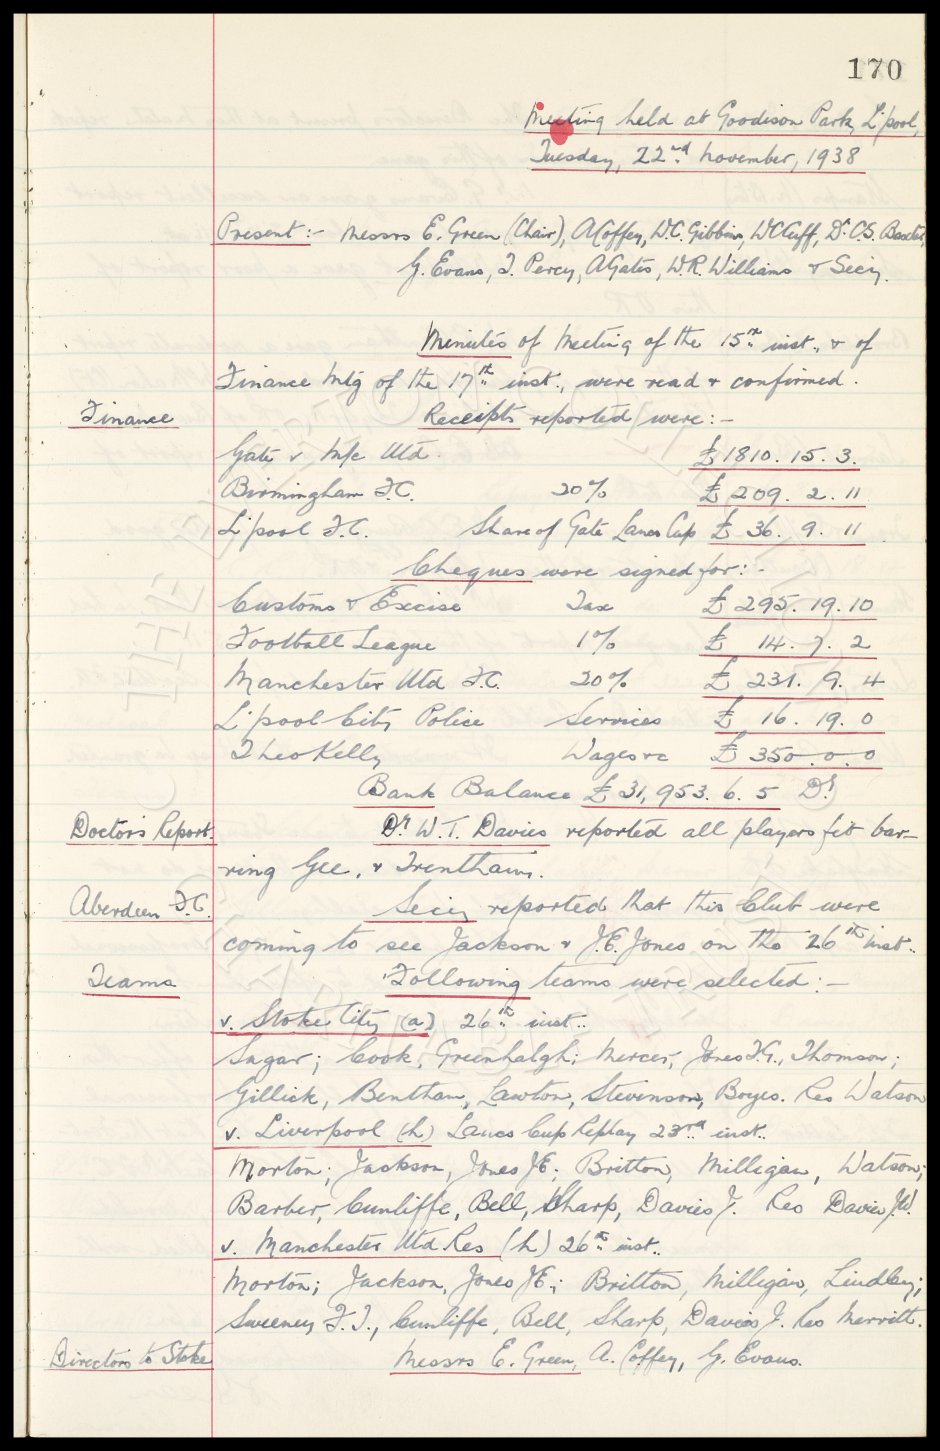 170
Meeting held at Goodison Park, L'pool,
Tuesday, 22nd November, 1938
Present:- Messrs E. Green (Chair), A Coffey, W.C. Gibbins, W C Cuff, Dr C.S. Baxter,
G. Evans, T. Percy, A Gates, W.R. Williams & Secy.
Minutes of Meeting of the 15th inst., & of
Finance Mtg of the 17th inst., were read & confirmed.
Finance Receipts reported were:-
Gate v M/c Utd. £1810. 15. 3.
Birmingham F.C. 20% £ 209. 2. 11
L'pool F.C. Share of Gate Lancs Cup £ 36. 9. 11
Cheques were signed for:-
Customs & Excise Tax £ 295. 19. 10
Football League 1% £ 14. 7. 2
Manchester Utd F.C. 20% £ 231. 9. 4
L'pool City Police Services £ 16. 19. 0
Theo Kelly Wages &c £ 350. 0. 0
Bank Balance £31,953. 6. 5 Dr
Doctor's Report. Dr W.T. Davies reported all players fit bar-
ring Gee, & Trentham.
Aberdeen F.C. Secy reported that this Club were
coming to see Jackson & J.E. Jones on the 26th inst.
Teams Following teams were selected:-
v. Stoke City (a) 26th inst..
Sagar; Cook, Greenhalgh; Mercer, Jones T.G., Thomson;
Gillick, Bentham, Lawton, Stevenson, Boyes. Res Watson
v. Liverpool (h) Lancs Cup Replay 23rd inst..
Morton; Jackson, Jones JE; Britton, Milligan, Watson;
Barber, Cunliffe, Bell, Sharp, Davies J. Res Davies J.W.
v. Manchester Utd Res (h) 26th inst..
Morton; Jackson, Jones JE.; Britton, Milligan, Lindley;
Sweeney F.T., Cunliffe, Bell, Sharp, Davies J. Res Merritt.
Directors to Stoke Messrs E. Green, A. Coffey, G. Evans.